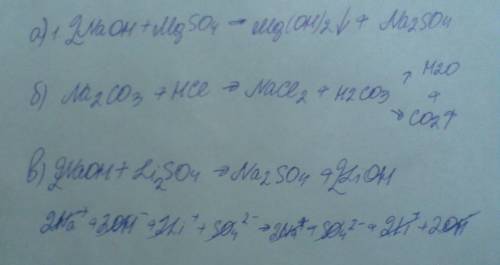 а) 1 2NaOH + MgSO4 → Mg(OH)2↓ + Na2SO4
б) Na2CO3 + HCl → NaCl2 + H2CO3 ↗ H2O + ↘ CO2↑
в) 2NaOH + Li2SO4 → Na2SO4 + 2LiOH
2Na⁺ + 2OH⁻ + 2Li⁺ + SO4²⁻ → 2Na⁺ + SO4²⁻ + 2Li⁺ + 2OH⁻